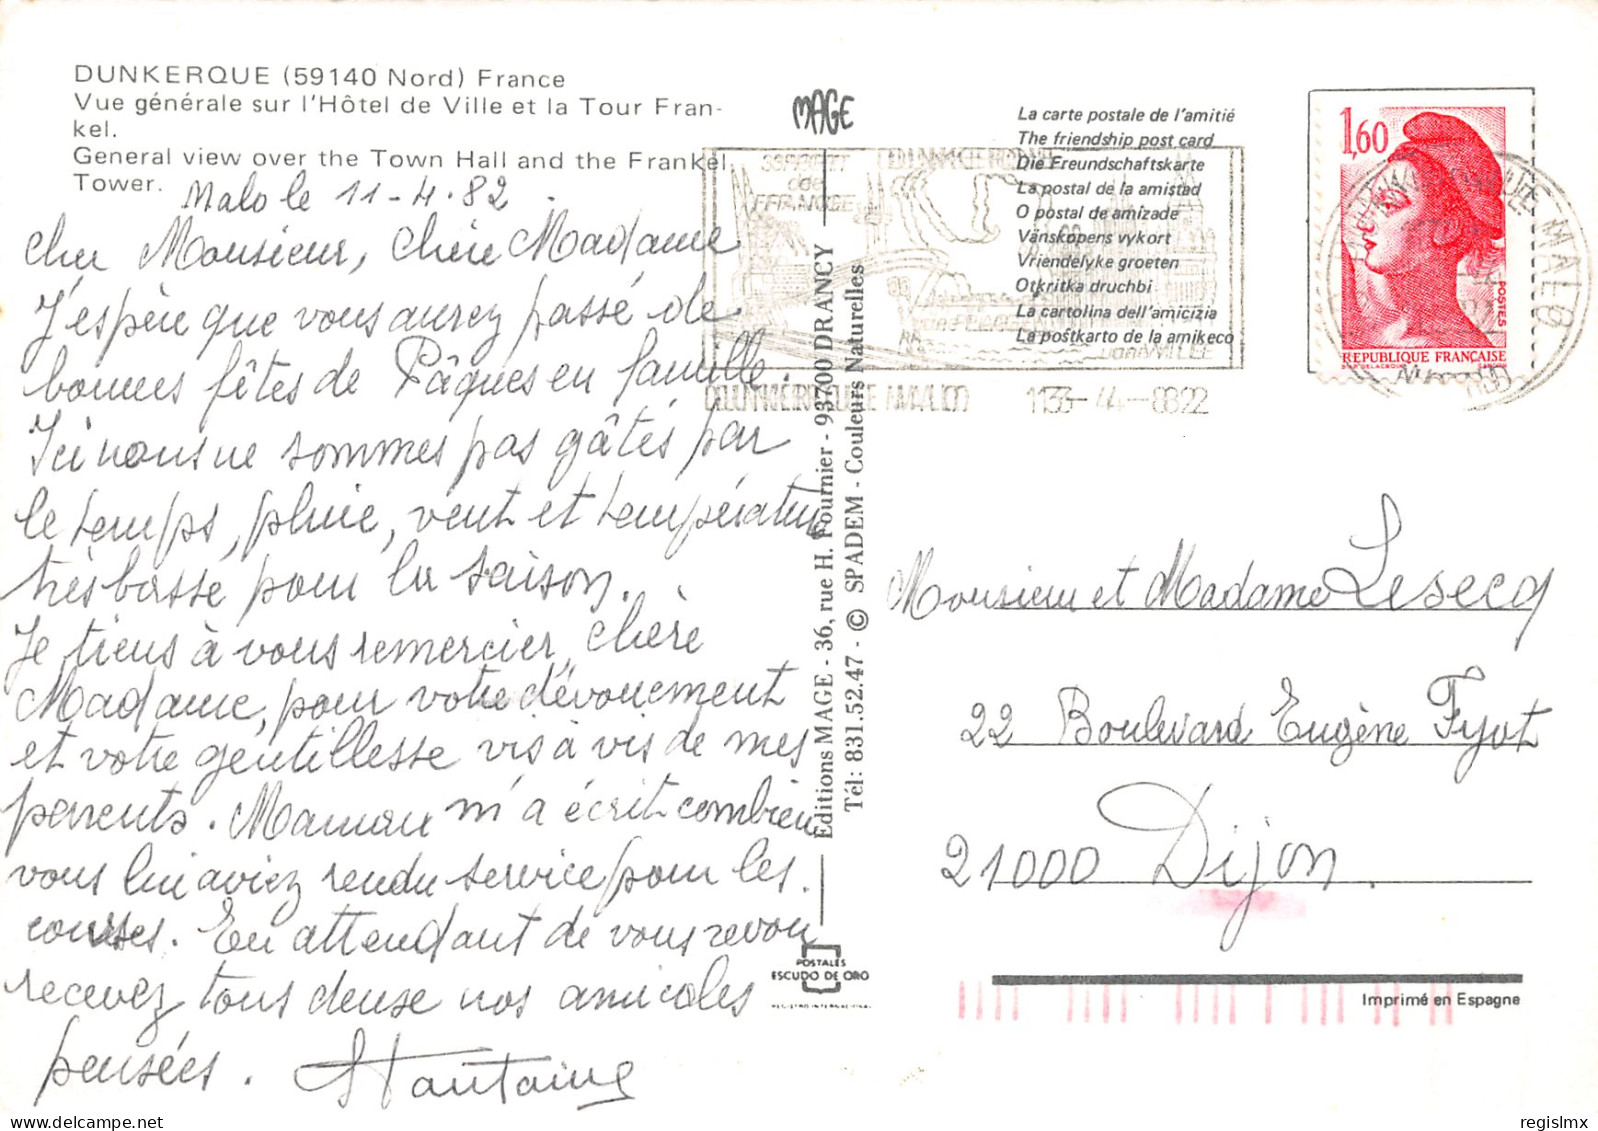 DUNKERQUE (59140 Nord) France
Vue générale sur l'Hôtel de Ville et la Tour Fran-
kel.
General view over the Town Hall and the Frankel
Tower.
Malo le 11-4-82.
Cher Monsieur, chère Madame
J'espère que vous aurez passé de
bonnes fêtes de Pâques en famille.
Ici nous ne sommes pas gâtés par
le temps, pluie, vent et température
très basse pour la saison.
Je tiens à vous remercier, chère
Madame, pour votre dévouement
et votre gentillesse vis à vis de mes
parents. Maman m'a écrit combien
vous lui aviez rendu service pour les
courses. En attendant de vous revoir
recevez tous deux nos amicales
pensées.
MAGE
Editions MAGE - 36, rue H. Fournier - 93700 DRANCY
Tél: 831.52.47 - © SPADEM - Couleurs Naturelles
POSTALES
ESCUDO DE ORO
REGISTRO INTERNACIONAL
La carte postale de l'amitié
The friendship post card
Die Freundschaftskarte
La postal de la amistad
O postal de amizade
Vänskapens vykort
Vriendelyke groeten
Otkritka druchbi
La cartolina dell'amicizia
La postkarto de la amikeco
1,60
POSTES
REPUBLIQUE FRANÇAISE
Monsieur et Madame Lesecq
22 Boulevard Eugène Fyot
21000 Dijon.
Imprimé en Espagne
regislmx